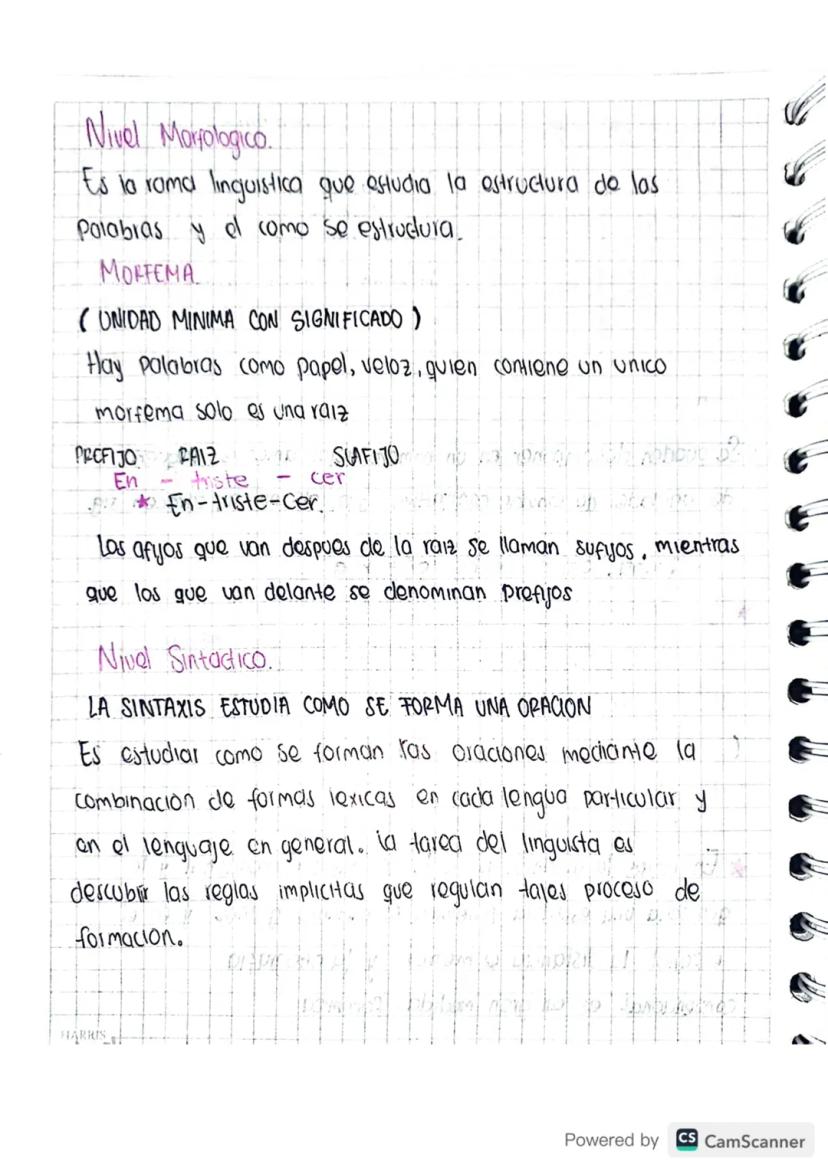 Nivel Morfologico.
Es la rama linguistica que estudia la estructura de las
Palabras y el como se estructura.
MORFEMA.
( UNIDAD MINIMA CON SIGNIFICADO )
Hay palabras como papel, veloz, quien contiene un unico
morfema solo es una raiz
PREFIJO RAIZ SUFIJO
En - triste - cer
* En-triste-cer.
Los afijos que van despues de la raiz se llaman sufijos, mientras
que los que van delante se denominan prefijos
Nivel Sintactico.
LA SINTAXIS ESTUDIA COMO SE FORMA UNA ORACION
Es estudiar como se forman las oraciones mediante la
combinacion de formas lexicas en cada lengua particular y
en el lenguaje en general. la tarea del linguista es
descubrir las reglas implicitas que regulan tales proceso de
formacion.
HARRIS
Powered by CS CamScanner